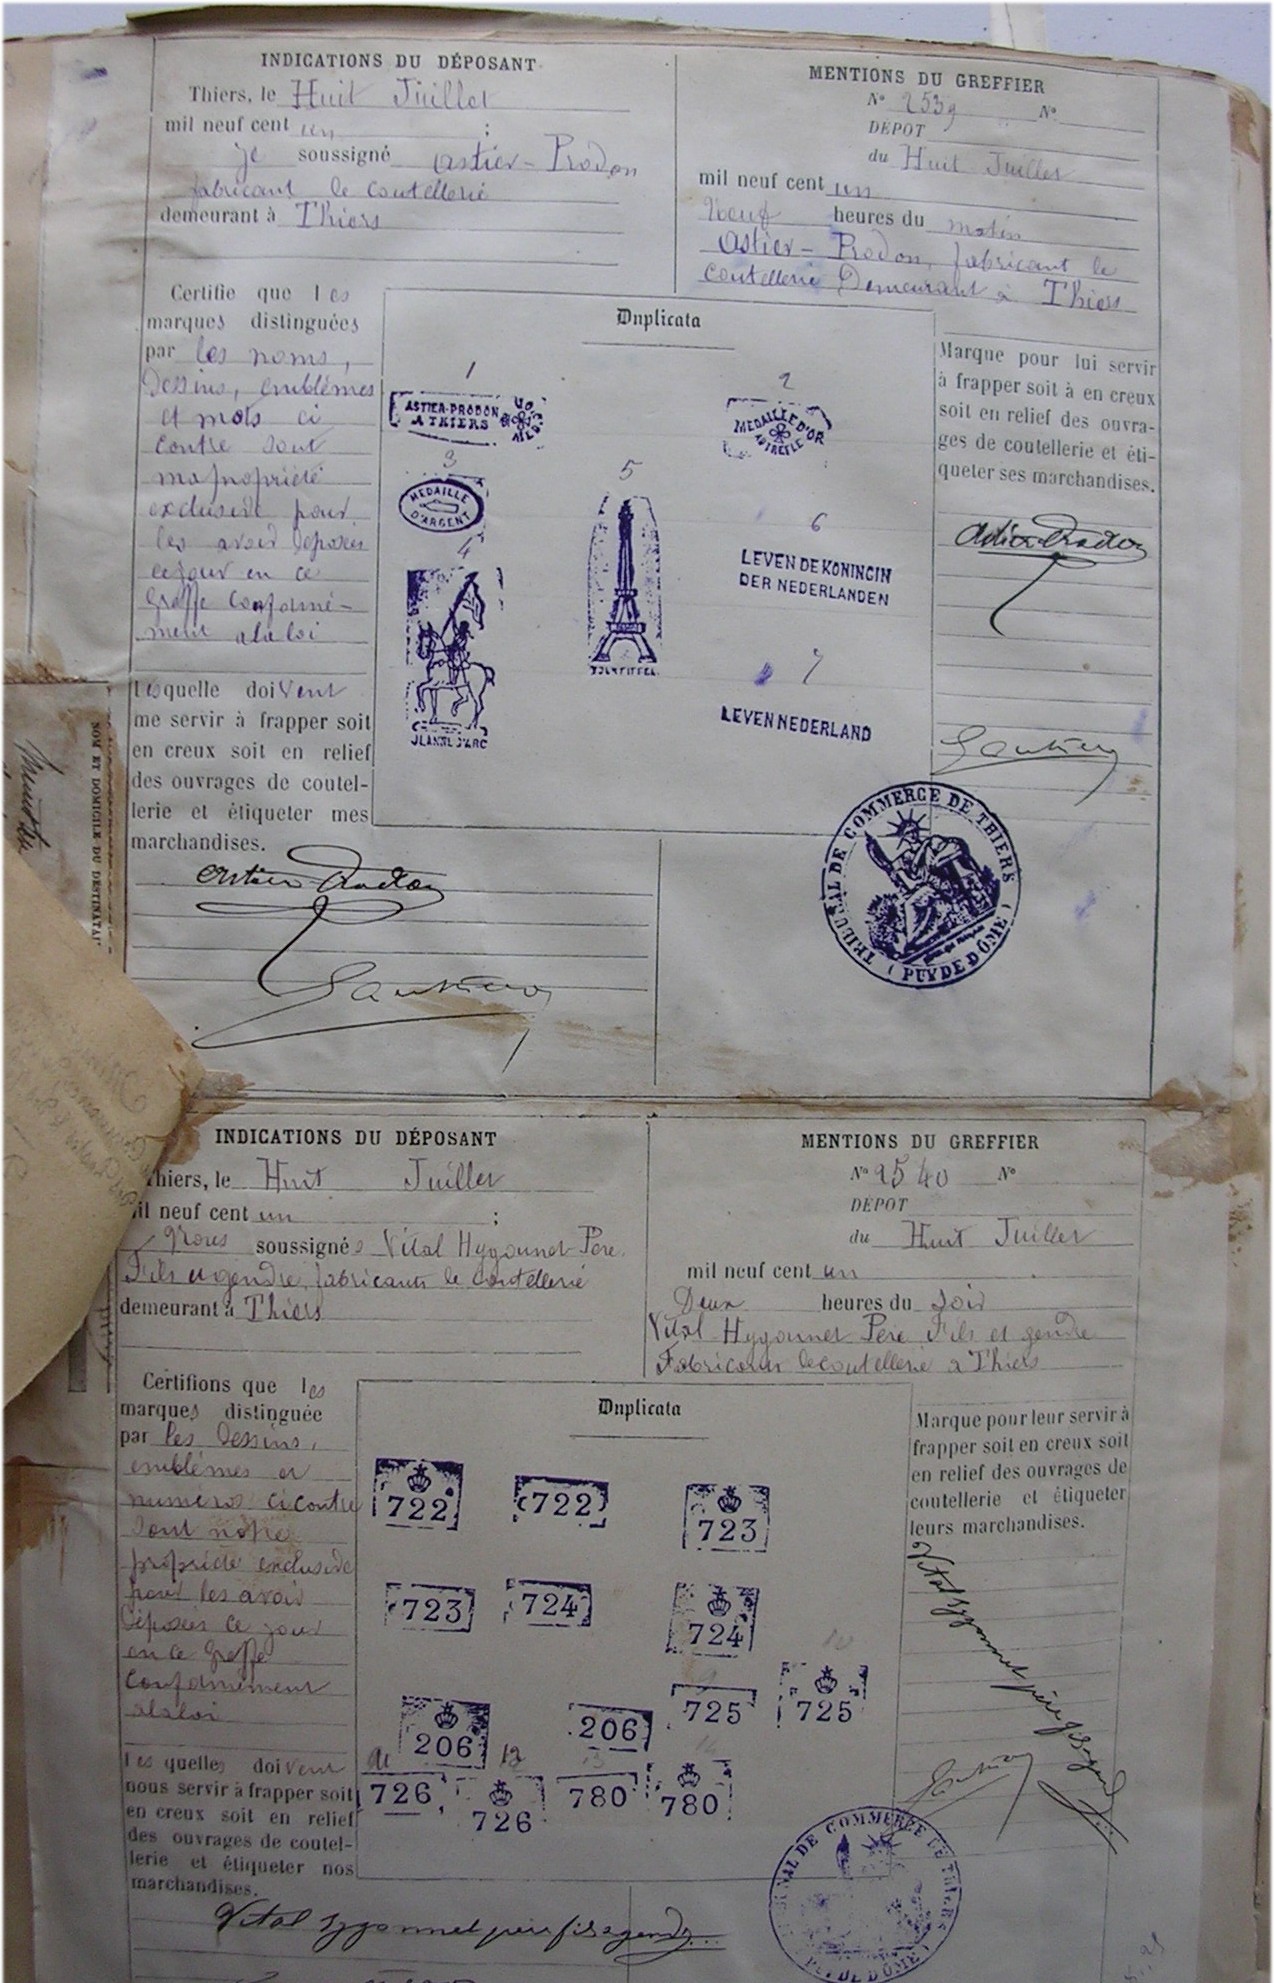 INDICATIONS DU DÉPOSANT
Thiers, le Huit Juillet
mil neuf cent un ;
je soussigné Astier-Prodon
fabricant de coutellerie
demeurant à Thiers
Certifie que les
marques distinguées
par les noms,
dessins, emblémes
et mots ci
contre sont
ma propriété
exclusive pour
les avoir déposées
ce jour en ce
Greffe conformé-
ment à la loi
Lesquelle doivent
me servir à frapper soit
en creux soit en relief
des ouvrages de coutel-
lerie et étiqueter mes
marchandises.
Astier-Prodon
MENTIONS DU GREFFIER
N° 2539 N°
DÉPOT
du Huit Juillet
mil neuf cent un
Neuf heures du matin
Astier-Prodon, fabricant de
coutellerie Demeurant à Thiers
Duplicata
1
ASTIER-PRODON
A THIERS
2
MEDAILLE D'OR
AU TREFLE
3
MEDAILLE
D'ARGENT
4
JEANNE D'ARC
5
TOUR EIFFEL
6
LEVEN DE KONINGIN
DER NEDERLANDEN
7
LEVEN NEDERLAND
Marque pour lui servir
à frapper soit à en creux
soit en relief des ouvra-
ges de coutellerie et éti-
queter ses marchandises.
Astier-Prodon
TRIBUNAL DE COMMERCE DE THIERS
( PUY DE DÔME )
NOM ET DOMICILE DU DESTINATAI
INDICATIONS DU DÉPOSANT
Thiers, le Huit Juillet
mil neuf cent un ;
Nous soussignés Vital Hygonnet Père
Fils et gendre, fabricants de coutellerie
demeurant à Thiers
Certifions que les
marques distinguée
par les dessins,
emblémes et
numéros ci contre
sont notre
propriété exclusive
pour les avoir
déposées ce jour
en ce Greffe
conformément
à la loi
Les quelles doivent
nous servir à frapper soit
en creux soit en relief
des ouvrages de coutel-
lerie et étiqueter nos
marchandises.
Vital Hygonnet père fils et gendre
MENTIONS DU GREFFIER
N° 2540 N°
DÉPOT
du Huit Juillet
mil neuf cent un
Deux heures du soir
Vital Hygonnet Père Fils et gendre
Fabricants de coutellerie à Thiers
Duplicata
722 722 723
723 724 724
9 10
206 206 725 725
11 12 13 14
726 726 780 780
Marque pour leur servir à
frapper soit en creux soit
en relief des ouvrages de
coutellerie et étiqueter
leurs marchandises.
Vital Hygonnet père fils et gendre
TRIBUNAL DE COMMERCE DE THIERS
( PUY DE DÔME )